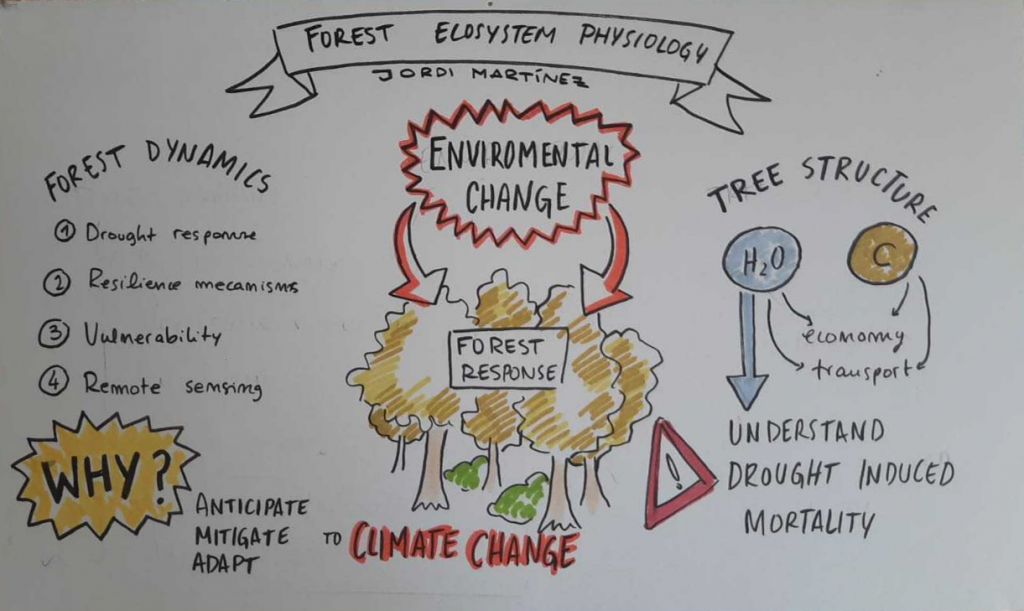 FOREST ECOSYSTEM PHYSIOLOGY
JORDI MARTÍNEZ
ENVIROMENTAL
CHANGE
FOREST DYNAMICS
1 Drought response
2 Resilience mecamisms
3 Vulnerability
4 Remote sensing
WHY?
ANTICIPATE
MITIGATE
ADAPT
TO CLIMATE CHANGE
FOREST
RESPONSE
TREE STRUCTURE
H2O
C
economy
transport
!
UNDERSTAND
DROUGHT INDUCED
MORTALITY